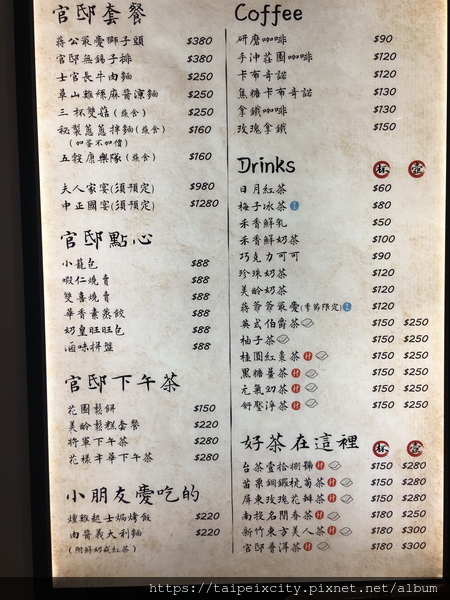 官邸套餐
蔣公最愛獅子頭 $380
官邸無錫子排 $380
士官長牛肉麵 $250
草山雞絲麻醬涼麵 $250
三杯雙菇(蔬食) $250
秘製蔥蔥拌麵(蔬食) $160
(加蛋不加價)
五穀康樂隊(蔬食) $160
夫人家宴(須預定) $980
中正國宴(須預定) $1280
官邸點心
小籠包 $88
蝦仁燒賣 $88
雙喜燒賣 $88
華香素蒸餃 $88
奶皇旺旺包 $88
滷味拼盤 $88
官邸下午茶
花園鬆餅 $150
美齡鬆糕套餐 $220
將軍下午茶 $280
花樣年華下午茶 $280
小朋友愛吃的
燻雞起士焗烤飯 $220
肉醬義大利麵 $220
(附鮮奶或紅茶)
Coffee
研磨咖啡 $90
手沖莊園咖啡 $120
卡布奇諾 $120
焦糖卡布奇諾 $130
拿鐵咖啡 $130
玫瑰拿鐵 $150
Drinks 杯 壺
日月紅茶 $60
梅子冰茶 $80
禾香鮮乳 $50
禾香鮮奶茶 $100
巧克力可可 $90
珍珠奶茶 $120
美齡奶茶 $120
蔣爺爺最愛(季節限定) $120
英式伯爵茶 $150 $250
柚子茶 $150 $250
桂圓紅棗茶 $150 $250
黑糖薑茶 $150 $250
元氣茶 $150 $250
舒壓淨茶 $150 $250
好茶在這裡 杯 壺
台茶壹拾捌號 $150 $280
苗栗銅鑼杭菊茶 $150 $280
屏東玫瑰花瓣茶 $150 $280
南投名間春茶 $180 $250
新竹東方美人茶 $180 $300
官邸普洱茶 $180 $300
https://taipeixcity.pixnet.net/album